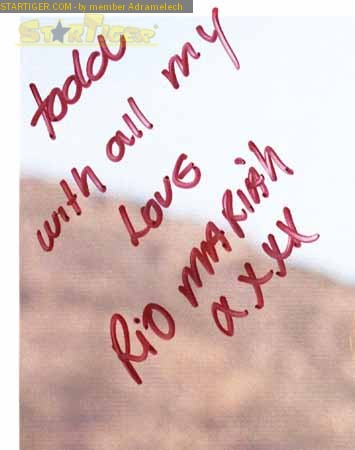 STARTIGER.COM - by member Adramelech
STARTIGER
todd
with all my
LOVE
RIO MARIAh
xxxx